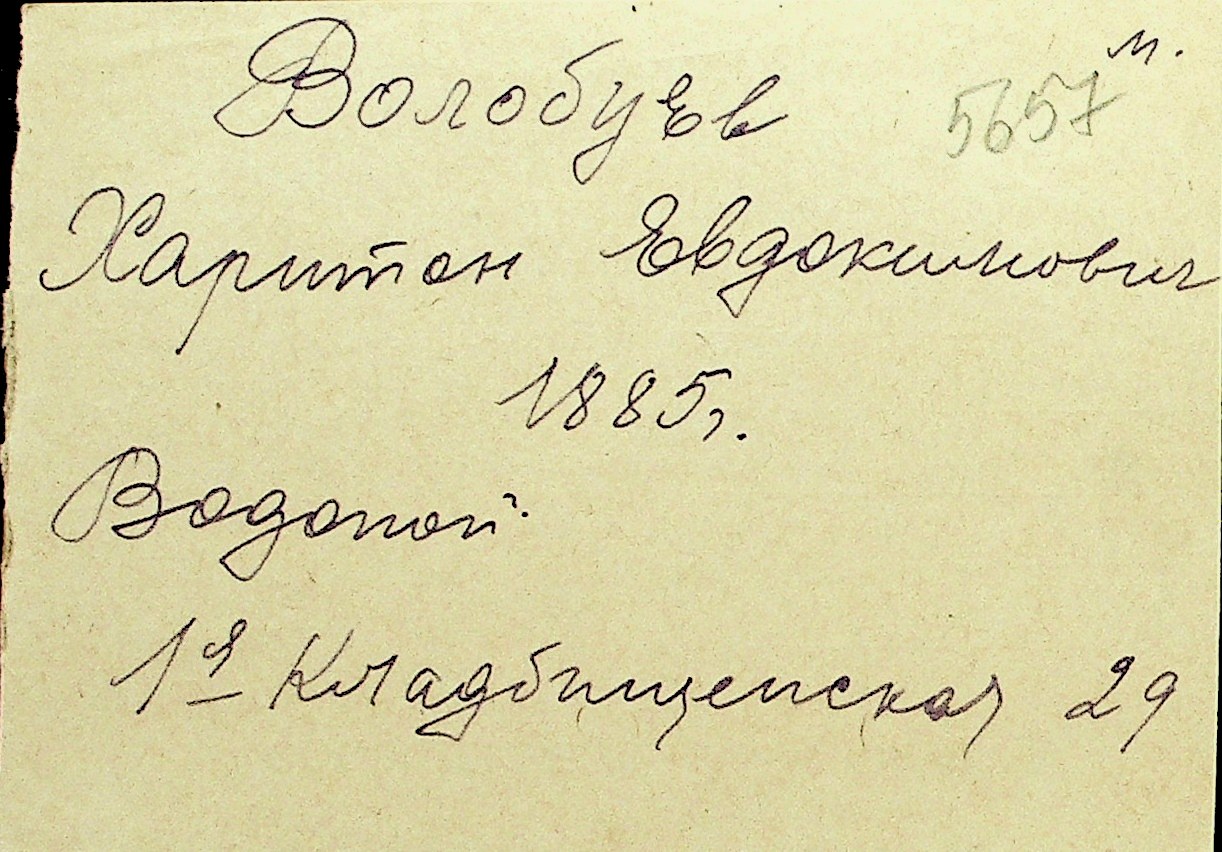 м.
Волобуев 5657
Харитон Евдокимович
1885г.
Водопой
1я Кладбищенская 29